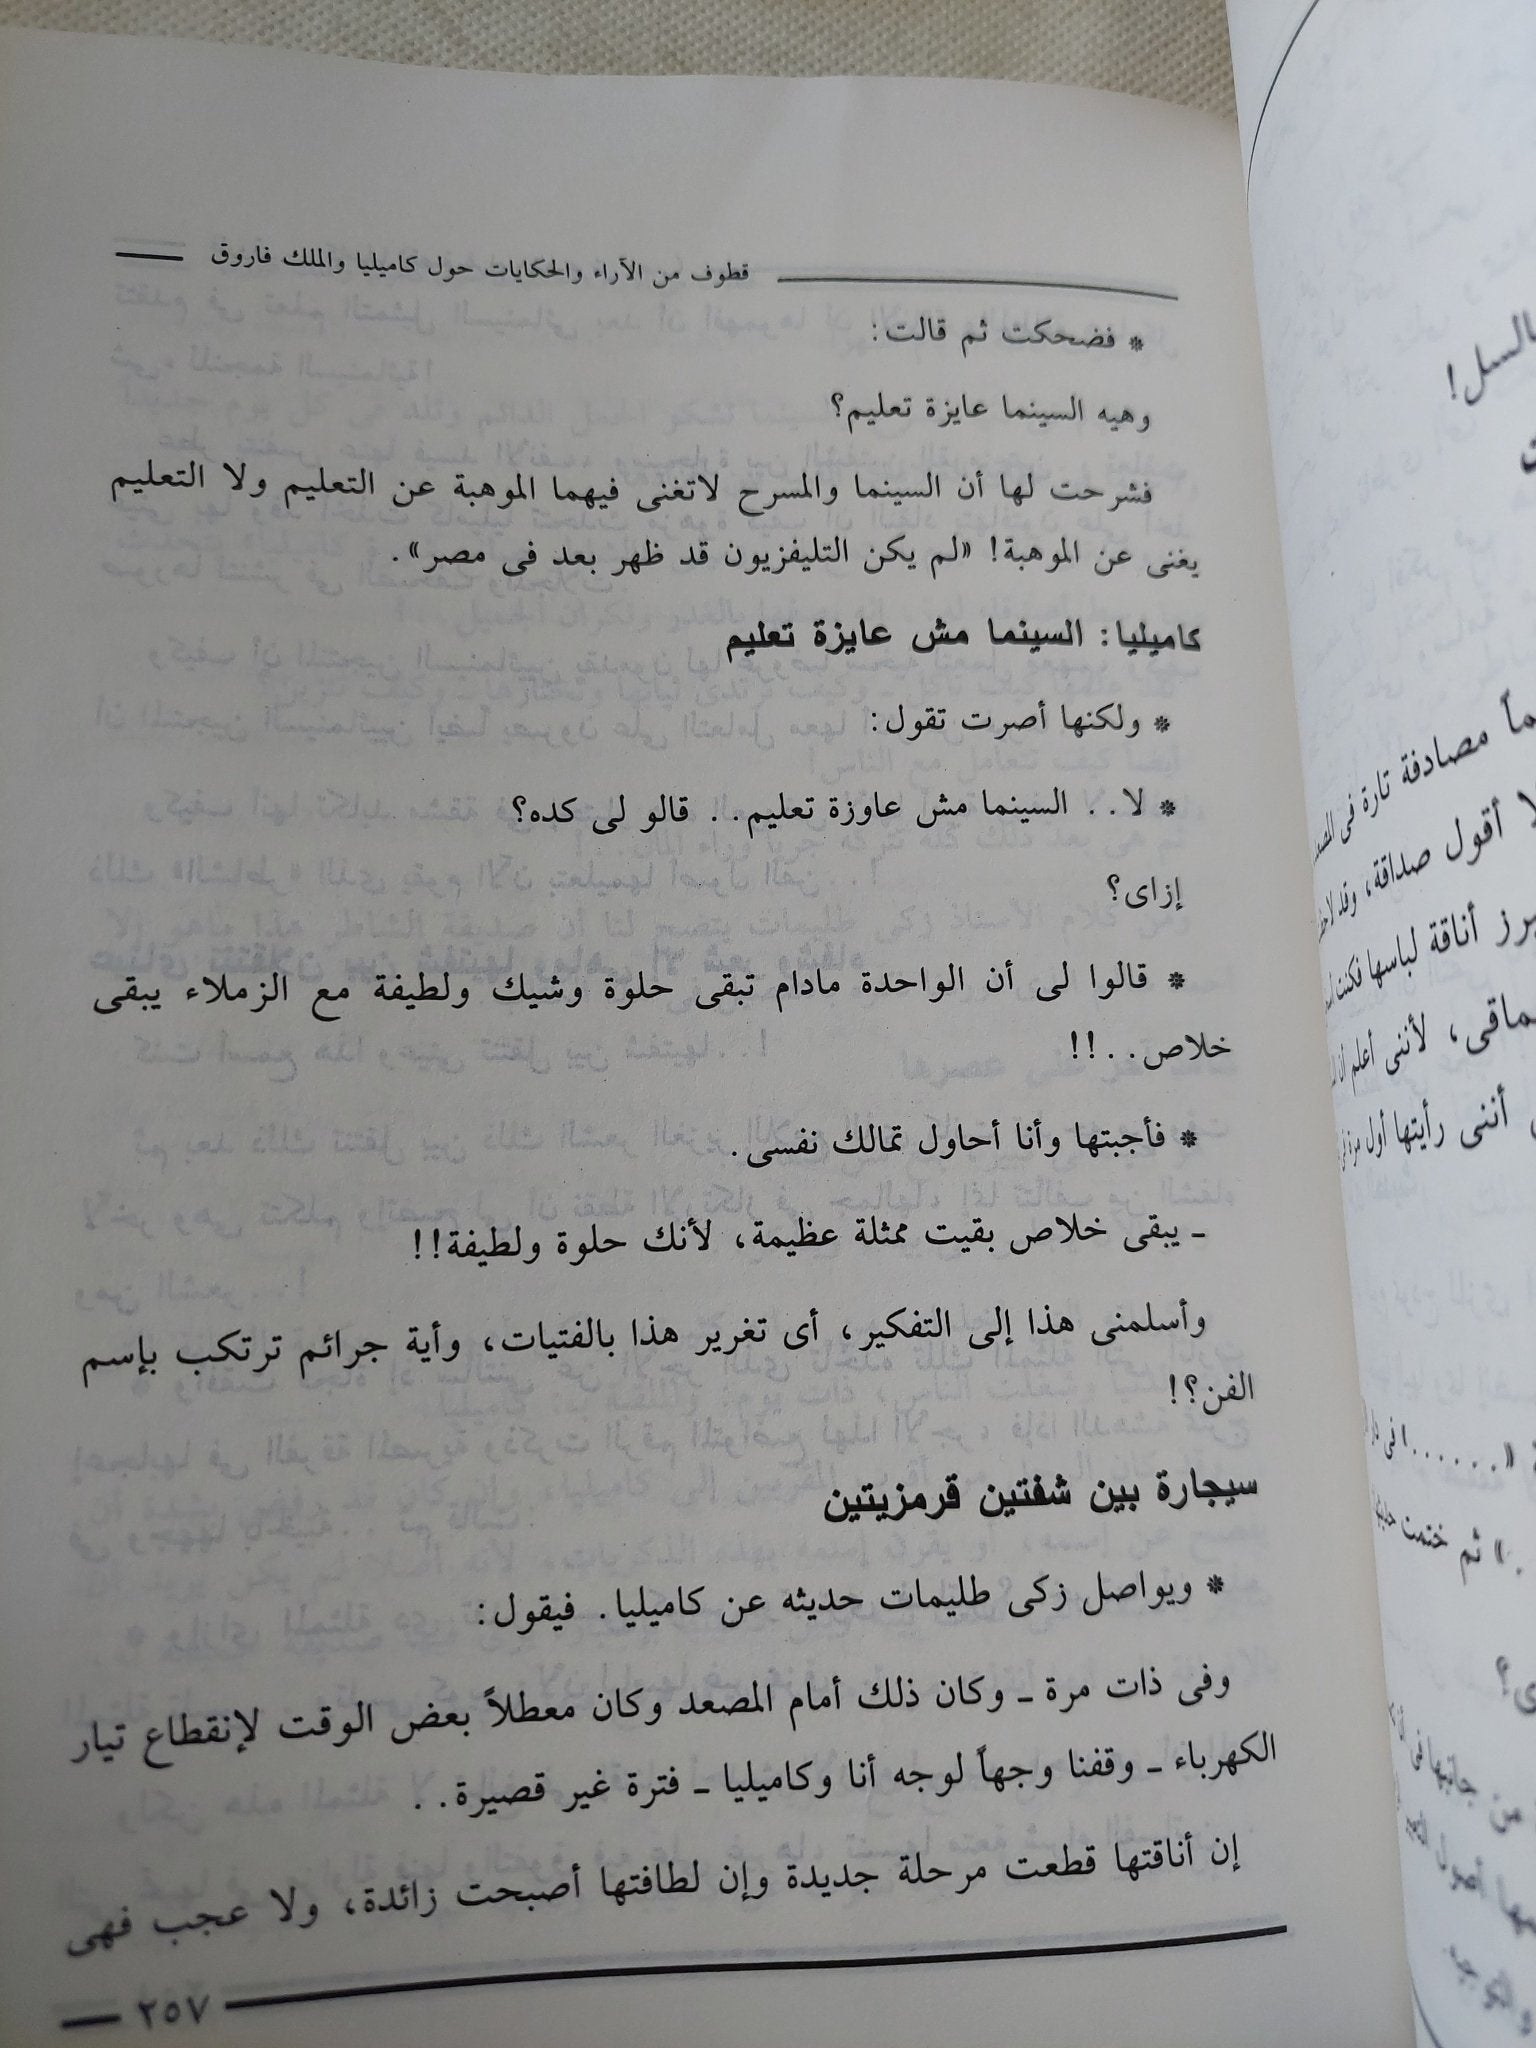 قطوف من الآراء والحكايات حول كاميليا والملك فاروق
* فضحكت ثم قالت:
وهيه السينما عايزة تعليم؟
فشرحت لها أن السينما والمسرح لاتغنى فيهما الموهبة عن التعليم ولا التعليم
يغنى عن الموهبة! «لم يكن التليفزيون قد ظهر بعد فى مصر».
كاميليا: السينما مش عايزة تعليم
* ولكنها أصرت تقول:
* لا.. السينما مش عاوزة تعليم.. قالو لى كده؟
إزاى؟
* قالوا لى أن الواحدة مادام تبقى حلوة وشيك ولطيفة مع الزملاء يبقى
خلاص..!!
* فأجبتها وأنا أحاول تمالك نفسى.
ـ يبقى خلاص بقيت ممثلة عظيمة، لأنك حلوة ولطيفة!!
وأسلمنى هذا إلى التفكير، أى تغرير هذا بالفتيات، وأية جرائم ترتكب بإسم
الفن؟!
سيجارة بين شفتين قرمزيتين
* ويواصل زكى طليمات حديثه عن كاميليا. فيقول:
وفى ذات مرة ـ وكان ذلك أمام المصعد وكان معطلاً بعض الوقت لإنقطاع تيار
الكهرباء ـ وقفنا وجهاً لوجه أنا وكاميليا ـ فترة غير قصيرة..
إن أناقتها قطعت مرحلة جديدة وإن لطافتها أصبحت زائدة، ولا عجب فهى
٢٥٧
بالسل!
مصادفة تارة فى
أقول صداقة، وقد
أناقة لباسها فكنت
لأننى أعلم أن
أننى رأيتها أول مرة
ثم ختمت
من جانبها فى